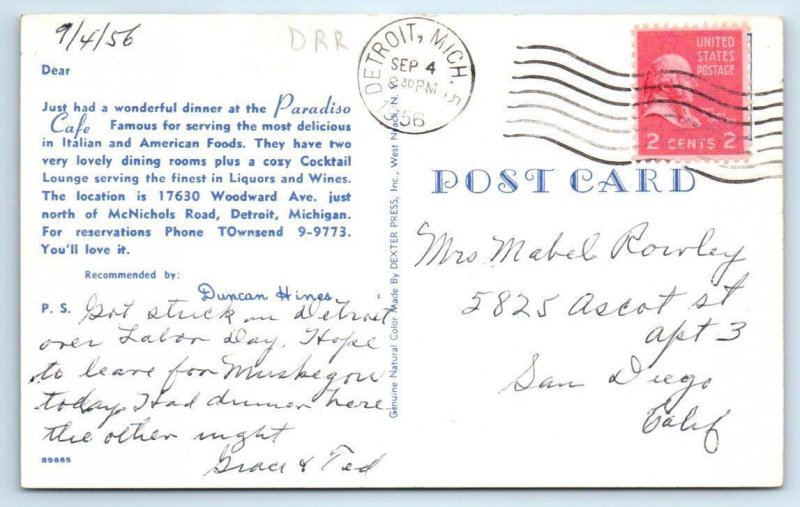 9/4/56
DRR
Dear
Just had a wonderful dinner at the Paradiso
Cafe Famous for serving the most delicious
in Italian and American Foods. They have two
very lovely dining rooms plus a cozy Cocktail
Lounge serving the finest in Liquors and Wines.
The location is 17630 Woodward Ave. just
north of McNichols Road, Detroit, Michigan.
For reservations Phone TOwnsend 9-9773.
You'll love it.
Recommended by:
Duncan Hines
P. S. Got stuck in Detroit
over Labor Day. Hope
to leave for Muskegon
today. Had dinner here
the other night
Grace & Ted
89665
Genuine Natural Color Made By DEXTER PRESS, Inc., West Nyack, N. Y.
DETROIT, MICH.
SEP 4
30 PM
1956
UNITED
STATES
POSTAGE
2 CENTS 2
POST CARD
Mrs Mabel Rowley
5825 Ascot st
apt 3
San Diego
Calif